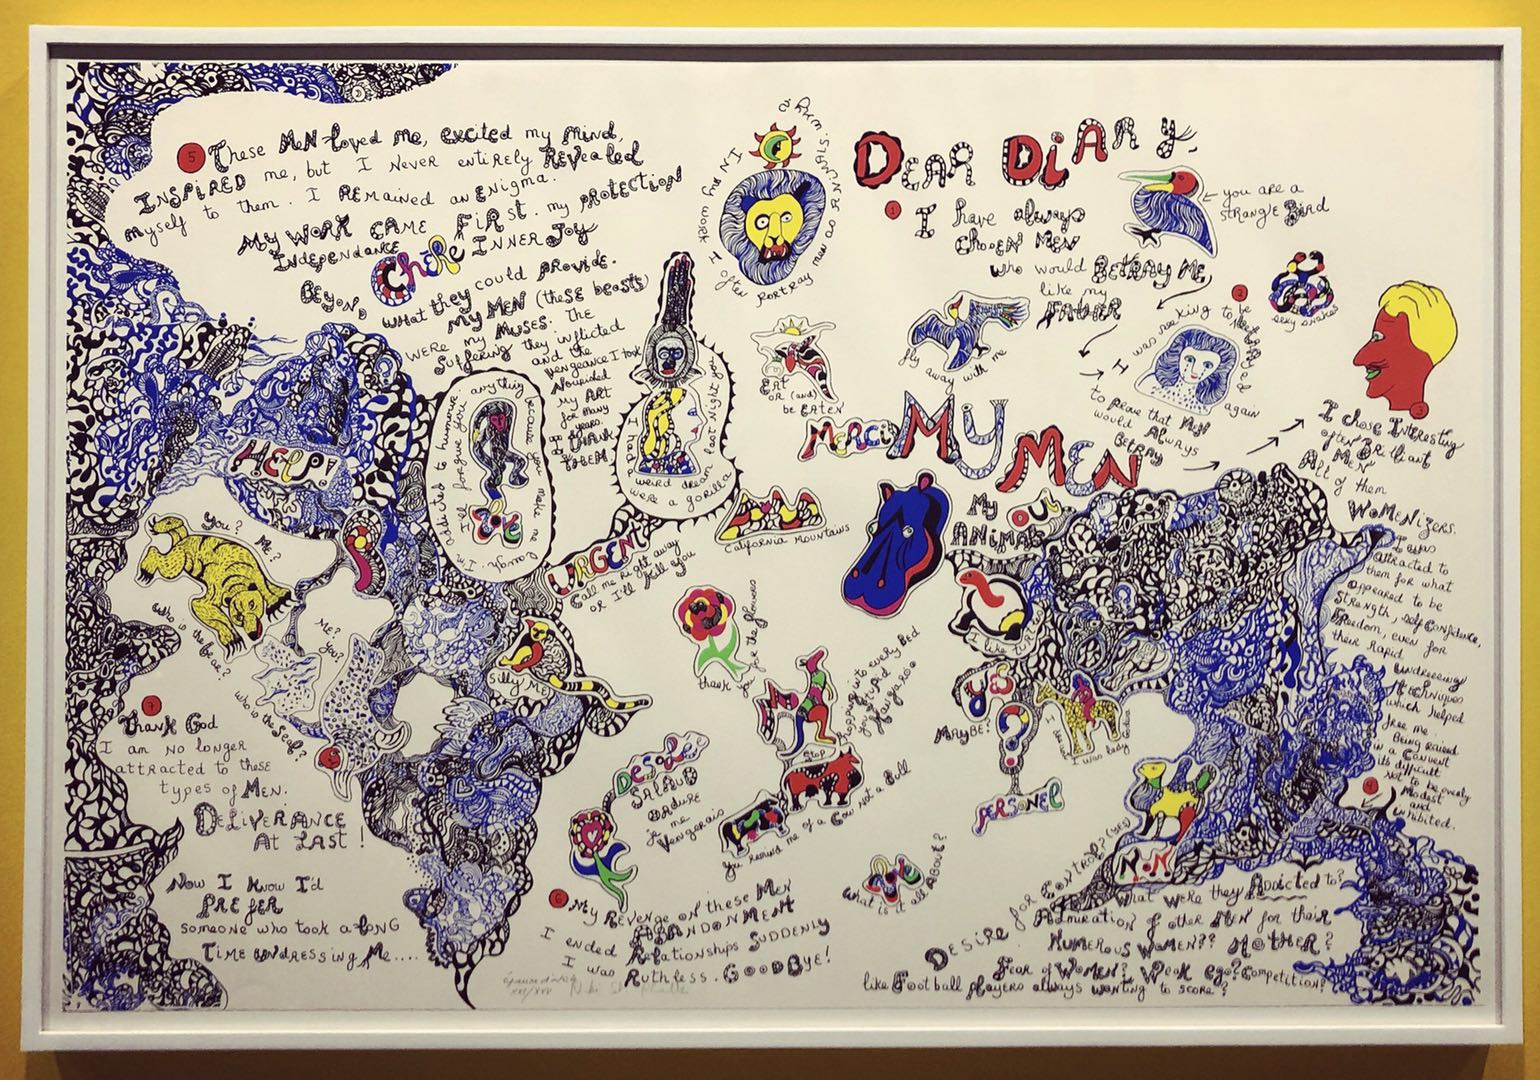 DEAR DiARy,
1
I have always
chosen MEN
who would BETRAY ME
like my
FATHER
you are a
STRANGE BiRD
2
I was seeking to be
again
to prove that MEN
would Always
BETRAY
sexy snakes
fly away with me
3
I chose Interesting
often BRilliant
MEN
All of them
WOMENIZERS.
I was
attracted to
them for what
appeared to be
Strength, self Confidence,
FReedom, even for
their Rapid
undressing
techniques
which helped
free me.
Being raised
in a Convent
its difficult
Not to be overly
Modest
and
inhibited.
4
DESiRE for CONTROL? (YES)
What were they ADDicted to?
ADmiRATioN of other MEN for their
NUMEROUS WoMEN?? MOTHER?
Fear of WOMEN? Weak ego? Competition?
like Football players always wanting to score?
MERCi
MY MEN
EAT
OR (and)
be EATEN
IN my work I often PORTRAY men as ANiMALS. Why
My OUR
ANiMAL
I like
YES
?
MAYBE?
I was lady Godiva
PERSONEL
NON
5
These MEN loved me, excited my Mind,
INSPIRED me, but I Never entirely REvealed
myself to them. I REMAINED an ENigma.
MY WORK CAME FiRSt. my PROtection
INDEPENDANCE
INNER Joy
CHÈRE
BEyon,
what they could provide.
MY MEN (these beasts)
WERE my MUSES. The
SUFFERING they inflicted
and the
vengeance I took
Nourished
My ART
for Many
years.
I THANK
THEM.
HELP!
I'm addicted to humour I'll forgive you anything because you make me laugh.
LOVE
I had a weird dream last Night you were a gorilla
URGENT
Call me right away
or I'll kill you
CALiFORNiA MOUNTAiNS
You?
ME?
Who is the bear?
ME?
You?
Who is the Seal?
SiLLY ME
thank you for the flowers
hopping into every bed
you stupid
kangaroo
Stop
You Remind me of a Cow not a Bull
DESOLÉE
SALAUD
ORDURE
je me
Vengerais
What is it all ABOUT?
6
My REVENGE on these MEN
ABANDONMENT
I ended Relationships SUDDENLY
I was RUTHLESS. GOODBYE!
7
Thank God
I am no longer
attracted to these
types of MEN.
DELiVERANCE
At LAST !
Now I Know I'd
PREFER
someone who took a LONG
TiME UNDRESSiNG ME....